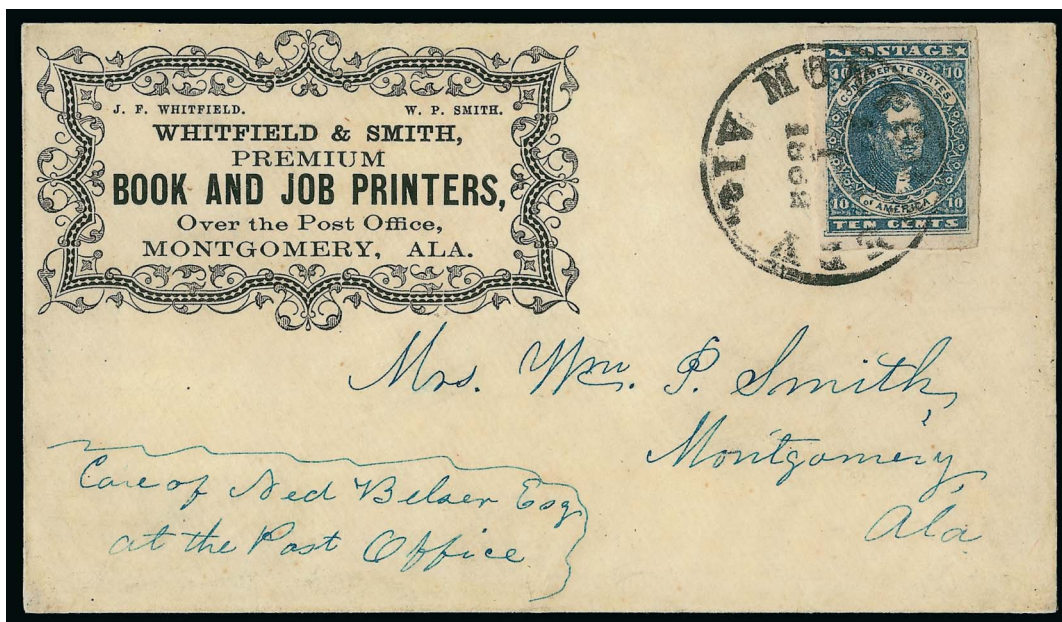 J. F. WHITFIELD. W. P. SMITH.
WHITFIELD & SMITH,
PREMIUM
BOOK AND JOB PRINTERS,
Over the Post Office,
MONTGOMERY, ALA.
★POSTAGE★
10 CONFEDERATE STATES 10
10 of AMERICA 10
TEN CENTS
Mrs. Wm. P. Smith,
Montgomery,
Ala
Care of Ned Belser Esq
at the Post Office